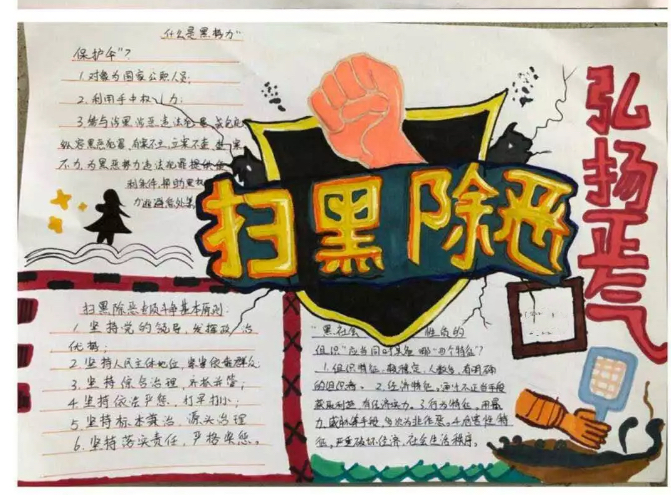 什么是黑势力"
保护伞"?
1.对象为国家公职人员;
2.利用手中权力;
3.参与涉黑涉恶违法犯罪,或包庇
纵容黑恶犯罪、有案不立、立案不查、查案
不力,为黑恶势力违法犯罪提供便
利条件,帮助黑
力逃避惩处
扫黑除恶
弘扬正气
扫黑除恶专项斗争基本原则:
1.坚持党的领导、发挥政治
优势;
2.坚持人民主体地位、紧紧依靠群众
3.坚持综合治理、齐抓共管;
4.坚持依法严惩、打早打小;
5.坚持标本兼治、源头治理
6.坚持落实责任,严格奖惩。
"黑社会 性质的
组织"应当同时具备哪四个特征?
1.组织特征。较稳定、人数多、有明确
的组织者。2.经济特征。通过不正当手段
获取利益,有经济实力。3.行为特征。用暴
力、威胁等手段,多次为非作恶。4.危害性特
征。严重破坏经济、社会生活秩序。